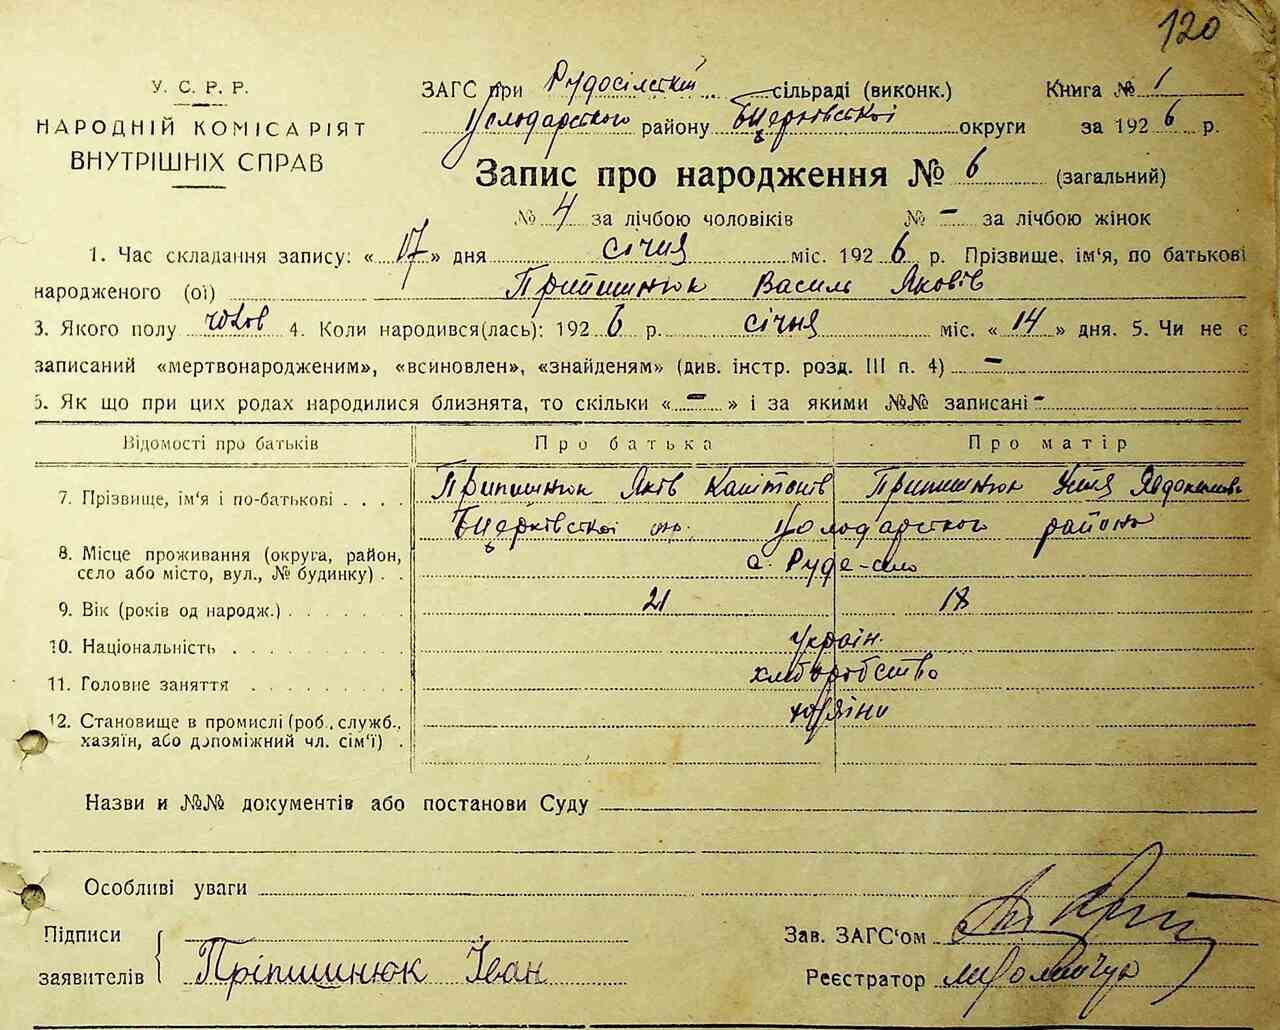 120
У. С. Р. Р.
НАРОДНІЙ КОМІСАРІЯТ
ВНУТРІШНІХ СПРАВ
ЗАГС при Рудосільскій сільраді (виконк.) Книга № 1
Володарского району Бцерківскоі округи за 1926 р.
Запис про народження № 6 (загальний)
№ 4 за лічбою чоловіків № - за лічбою жінок
1. Час складання запису: «17» дня січня міс. 1926 р. Прізвище, ім'я, по батькові
народженого (ої) Припишнюк Василь Яковів
3. Якого полу чолов 4. Коли народився(лась): 1926 р. січня міс. «14» дня. 5. Чи не є
записаний «мертвонародженим», «всиновлен», «знайденям» (див. інстр. розд. III п. 4) -
6. Як що при цих родах народилися близнята, то скільки «-» і за якими №№ записані -
Відомості про батьків Про батька Про матір
7. Прізвище, ім'я і по-батькові . . . . Припишнюк Яків Припишнюк
Бцерківскоі окр. Володарского района
8. Місце проживання (округа, район,
село або місто, вул., № будинку) . . с. Руде-село
9. Вік (років од народж.) . . . . . . . 21 18
10. Національність . . . . . . . . . . україн.
11. Головне заняття . . . . . . . . . хліборобство
12. Становище в промислі (роб., служб.,
хазяїн, або допоміжний чл. сім'ї) .
Назви и №№ документів або постанови Суду
Особливі уваги
Підписи
заявителів Пріпишнюк Іван
Зав. ЗАГС'ом
Реєстратор